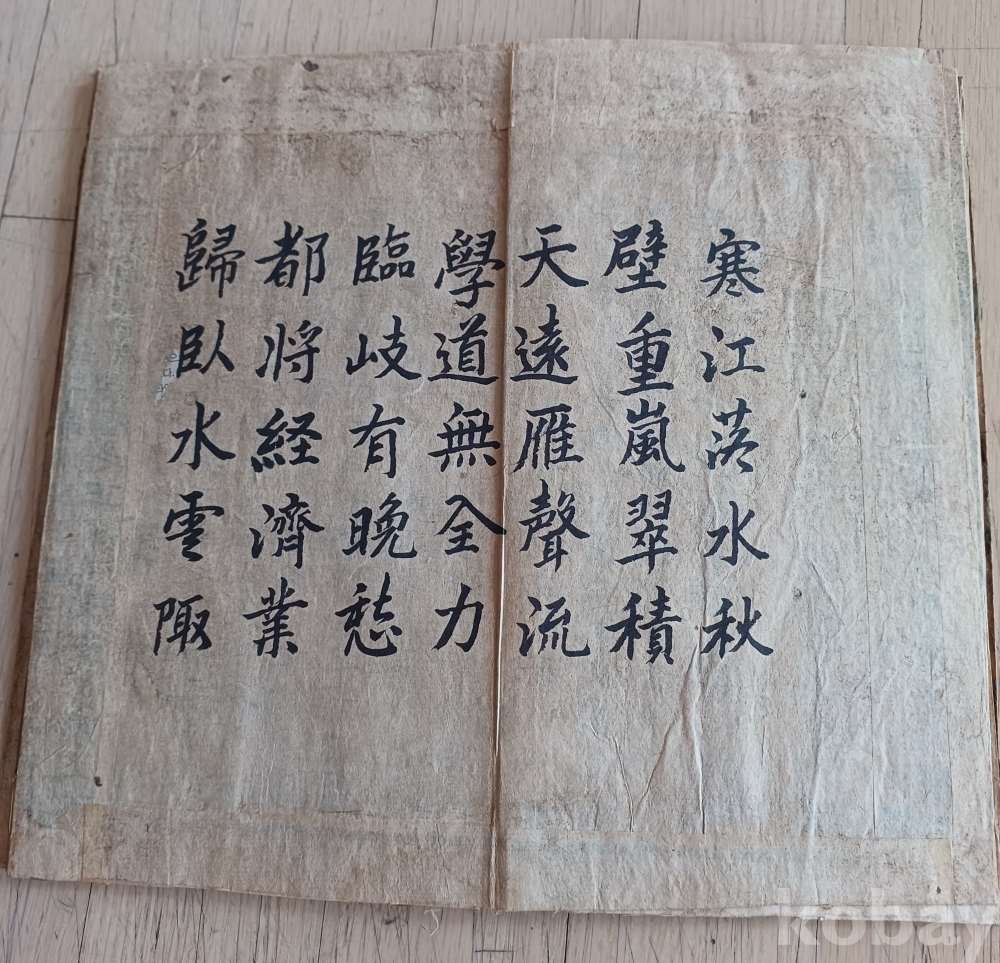 寒江落水秋
壁重嵐翠積
天遠雁聲流
學道無全力
臨岐有晚愁
都将経濟業
歸臥水雲陬
kobay